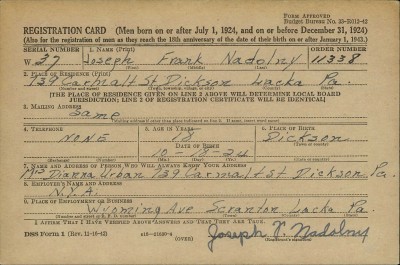 Form Approved
Budget Bureau No. 33-R012-42
REGISTRATION CARD (Men born on or after July 1, 1924, and on or before December 31, 1924)
(Also for the registration of men as they reach the 18th anniversary of the date of their birth on or after January 1, 1943.)
SERIAL NUMBER 1. NAME (Print) ORDER NUMBER
W. 37 Joseph Frank Nadolny 11338
(First) (Middle) (Last)
2. PLACE OF RESIDENCE (Print)
739 Carmalt St Dickson Lacka Pa.
(Number and street) (Town, township, village, or city) (County) (State)
[THE PLACE OF RESIDENCE GIVEN ON LINE 2 ABOVE WILL DETERMINE LOCAL BOARD
JURISDICTION; LINE 2 OF REGISTRATION CERTIFICATE WILL BE IDENTICAL]
3. MAILING ADDRESS
Same
[Mailing address if other than place indicated on line 2. If same, insert word same]
4. TELEPHONE 5. AGE IN YEARS 6. PLACE OF BIRTH
NONE 18 Dickson
DATE OF BIRTH (Town or county)
10-18-24
(Exchange) (Number) (Mo.) (Day) (Yr.) (State or country)
7. NAME AND ADDRESS OF PERSON WHO WILL ALWAYS KNOW YOUR ADDRESS
Mrs Dianna Urban 739 Carmalt St Dickson Pa.
8. EMPLOYER'S NAME AND ADDRESS
N.Y.A.
9. PLACE OF EMPLOYMENT OR BUSINESS
Wyoming Ave Scranton Lacka Pa.
(Number and street or R. F. D. number) (Town) (County) (State)
I AFFIRM THAT I HAVE VERIFIED ABOVE ANSWERS AND THAT THEY ARE TRUE.
DSS Form 1 (Rev. 11-16-42) (OVER) Joseph F. Nadolny
(Registrant's signature)